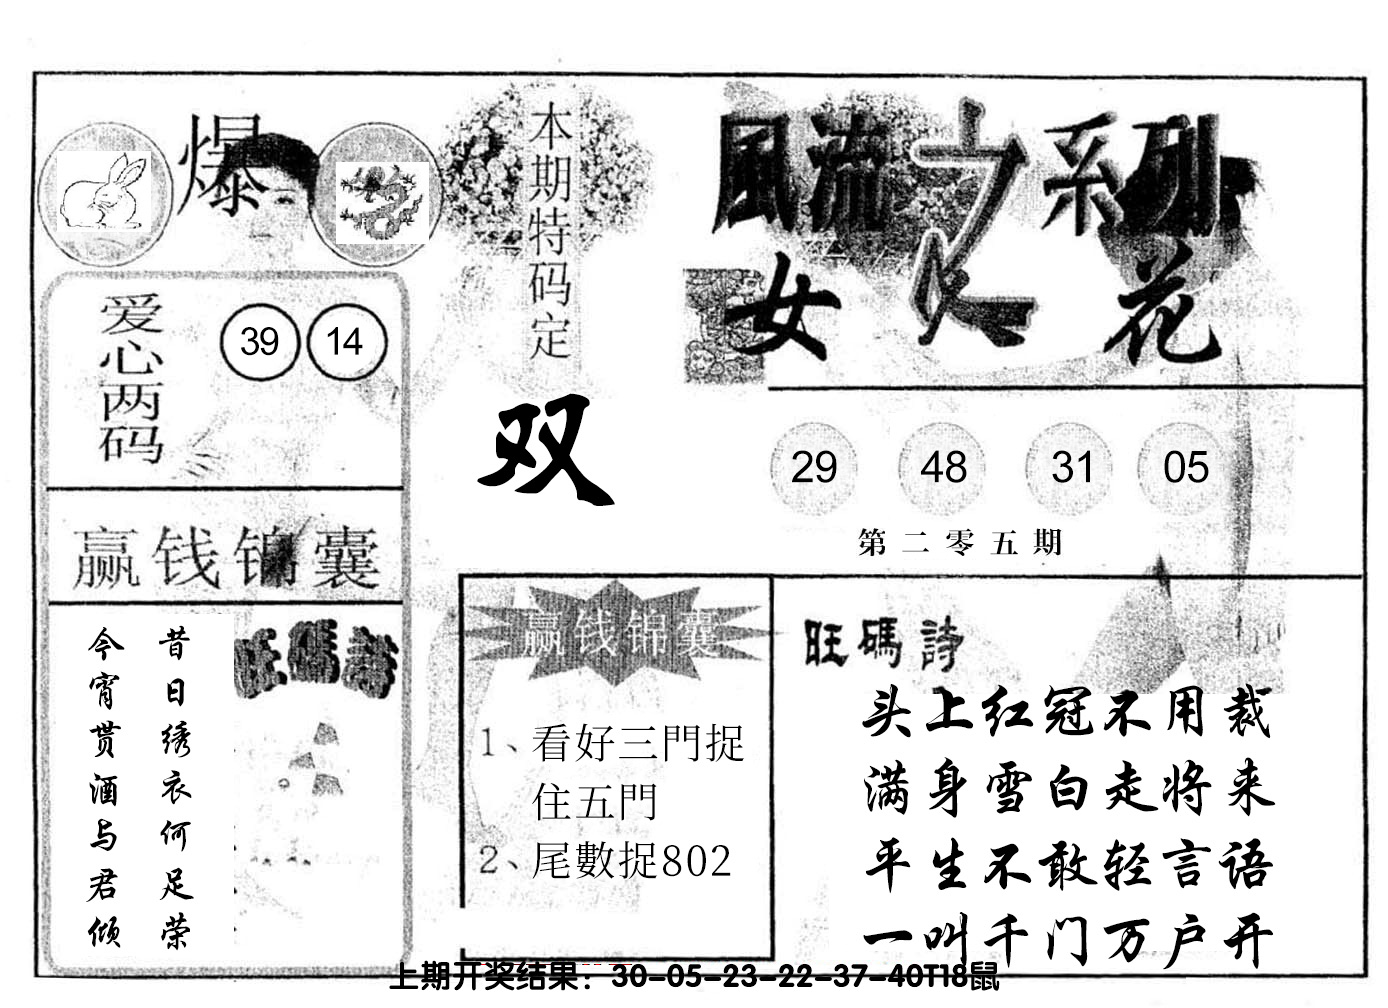 爆
本期特码定
双
風流之系列
女人花
爱心两码
39 14
29 48 31 05
第二零五期
赢钱锦囊
昔日绣衣何足荣
今宵贳酒与君倾
旺碼詩
赢钱锦囊
1、看好三門捉
住五門
2、尾數捉802
旺碼詩
头上红冠不用裁
满身雪白走将来
平生不敢轻言语
一叫千门万户开
上期开奖结果：30-05-23-22-37-40T18鼠